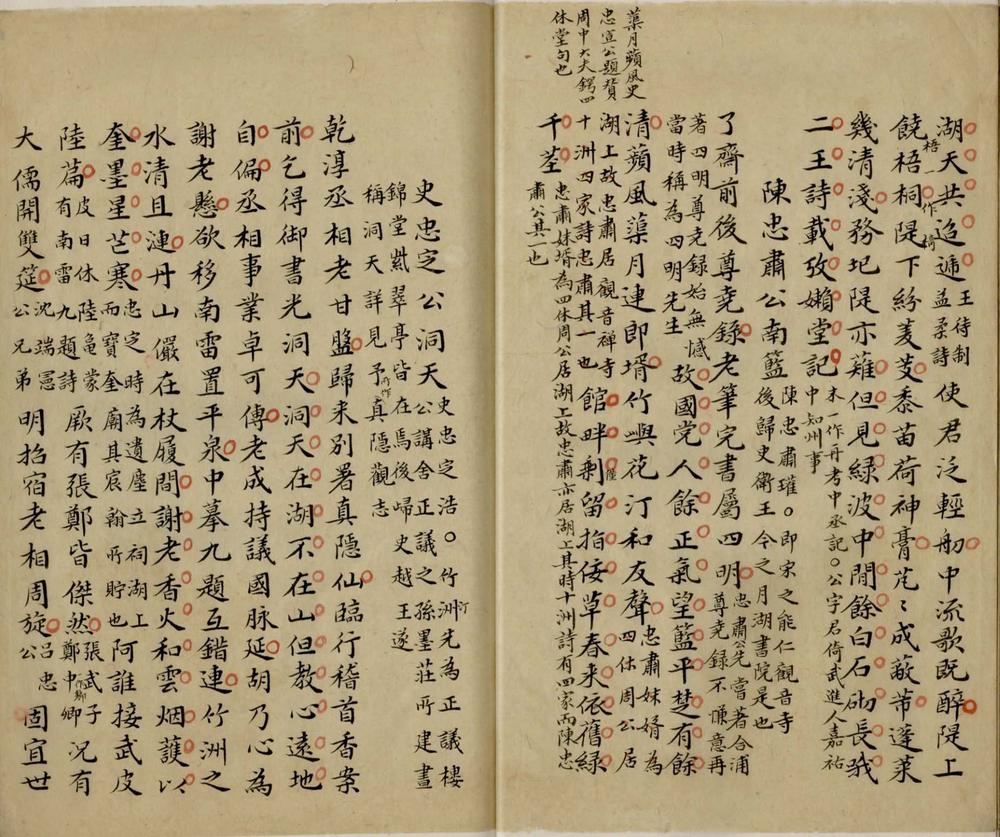 蕖月蘋風史
忠宣公題賛
周中大夫鍔四
休堂句也
湖天共迢遞王待制益柔詩使君泛輕舠中流歌既醉隄上
饒梧桐隄下紛菱芡黍苗荷神膏芃〻成蔽芾蓬萊
梧一作椅
幾清淺務圯隄亦薙但見綠波中閒餘白石砌長哦
二王詩載攷嬾堂記末一作舟考中丞記○公字君倚武進人嘉祐中知州事
陳忠肅公南籃陳忠肅瓘○即宋之能仁觀音寺後歸史衛王今之月湖書院是也
了齋前後尊堯錄老筆完書屬四明忠肅公先嘗著合浦尊堯錄不慊意再
著四明尊堯錄始無憾當時稱為四明先生故國党人餘正氣望籃平楚有餘
清蘋風蕖月連即壻竹嶼花汀和友聲忠肅妹婿為四休周公居
湖上故忠肅居觀音禅寺十洲四家詩忠肅其一也館畔剩留指佞草春来依舊綠
千茎忠肅妹壻為四休周公居湖上故忠肅亦居湖上其時十洲詩有四家而陳忠肅公其一也
史忠定公洞天史忠定浩○竹洲先為正議樓公講舍正議之孫墨莊所建晝
錦堂紫翠亭皆在焉後歸史越王遂稱洞天詳見予所作真隱觀志
乾淳丞相老甘盤歸来別署真隱仙臨行稽首香案
前乞得御書光洞天洞天在湖不在山但教心遠地
自偏丞相事業卓可傳老成持議國脉延胡乃心為
謝老懸欲移南雷置平泉中摹九題互錯連竹洲之
水清且漣丹山儼在杖履間謝老香火和雲烟䕶以
奎墨星芒寒忠定時為遺塵立祠湖上而寶奎廟其宸翰所貯也阿誰接武皮
陸篇皮日休陸龜蒙有南雷九題詩厥有張鄭皆傑然張武子鄭中卿況有
大儒開雙筵沈端憲公兄弟明招宿老相周旋呂忠公固宜世